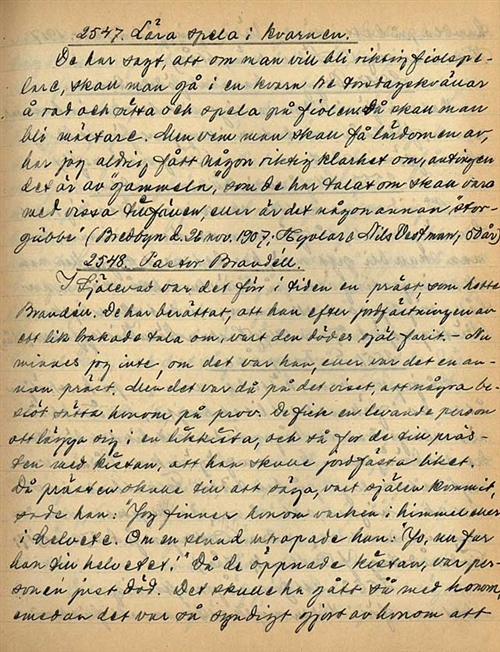 2547. Lära spela i kvarnen.
De har sagt, att om man vill bli riktig fiolspe-
lare, skall man gå i en kvarn tre torsdagskvällar
å rad och sitta och spela på fiolen. Då skall man
bli mästare. Men vem man skall få lärdomen av,
har jag aldrig fått någon riktig klarhet om, antingen
det är av "gammeln", som de har talat om skall vara
med vissa tillfällen, eller är det någon annan "stor-
gubbe" (Bredbyn d. 26 nov. 1907, Nils Vestman, 50 år)
2548. Pastor Brandell.
I Själevad var det förr i tiden en präst, som hette
Brandell. De har berättat, att han efter jordfästningen av
ett lik brukade tala om, vart den dödes själ farit. - Nu
minnes jag inte, om det var han, eller var det en an-
nan präst. Men det var då på det viset, att några be-
slöt sätta honom på prov. De fick en levande person
att lägga sig i en likkista, och så for de till präs-
ten med kistan, att han skulle jordfästa liket.
Då prästen skulle till att säga, vart själen kommit
sade han: "Jag finner honom varken i himmel eller
i helvete. Om en stund utropade han: "Jo, nu far
han till helvetet!" Då de öppnade kistan, var per-
sonen just död. Det skulle ha gått så med honom,
emedan det var så syndigt gjort av honom att